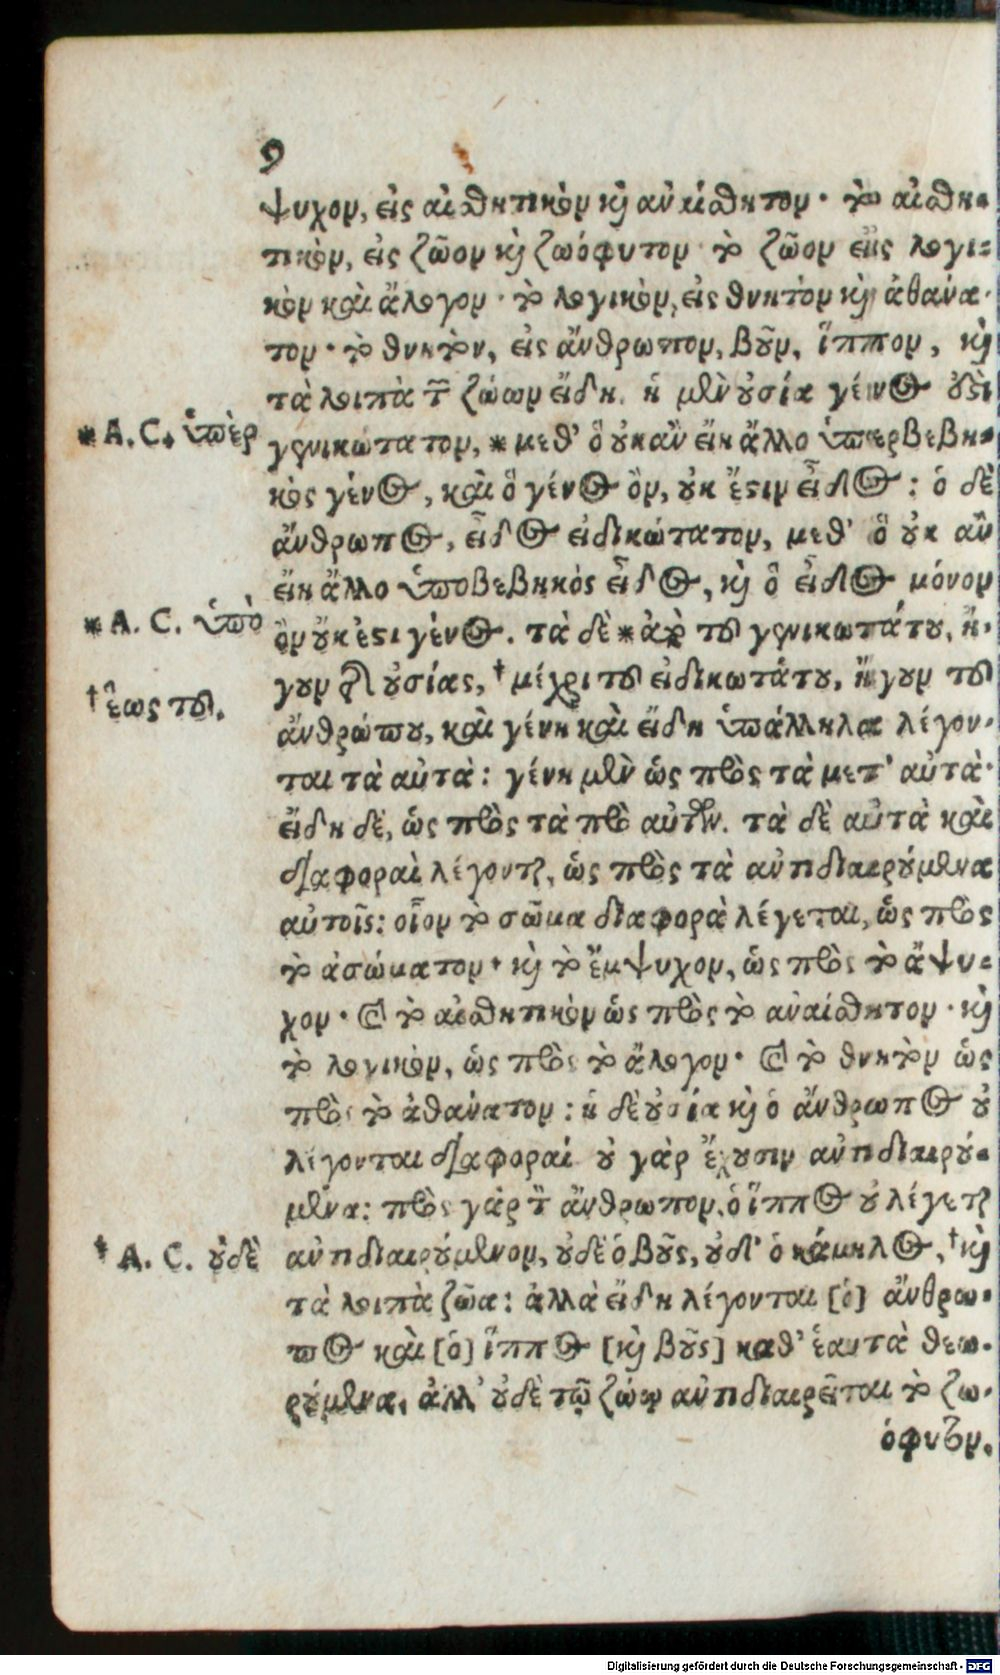 9
ψυχον, εἰς αἰσθητικὸν καὶ ἀναίσθητον· τὸ αἰσθη-
τικὸν, εἰς ζῶον καὶ ζωόφυτον· τὸ ζῶον εἰς λογι-
κὸν καὶ ἄλογον· τὸ λογικὸν, εἰς θνητὸν καὶ ἀθάνα-
τον· τὸ θνητὸν, εἰς ἄνθρωπον, βοῦν, ἵππον, καὶ
τὰ λοιπὰ τῶν ζώων εἴδη. ἡ μὲν οὐσία γένος ἐστὶ
* A. C. ὑπὲρ
γενικώτατον, * μεθ' ὃ οὐκ ἂν εἴη ἄλλο ὑπερβεβη-
κὸς γένος, καὶ ὃ γένος ὂν, οὐκ ἔστιν εἶδος: ὁ δὲ
ἄνθρωπος, εἶδος εἰδικώτατον, μεθ' ὃ οὐκ ἂν
εἴη ἄλλο ὑποβεβηκὸς εἶδος, καὶ ὃ εἶδος μόνον
* A. C. ὑπὸ
ὂν οὐκ ἔστι γένος. τὰ δὲ * ἀπὸ τοῦ γενικωτάτου, ἤ-
γουν τῆς οὐσίας, † μέχρι τοῦ εἰδικωτάτου, ἤγουν τοῦ
† ἕως τοῦ.
ἀνθρώπου, καὶ γένη καὶ εἴδη ὑπάλληλα λέγον-
ται τὰ αὐτὰ: γένη μὲν ὡς πρὸς τὰ μετ' αὐτὰ·
εἴδη δὲ, ὡς πρὸς τὰ πρὸ αὐτῶν. τὰ δὲ αὐτὰ καὶ
διαφοραὶ λέγονται, ὡς πρὸς τὰ ἀντιδιαιρούμενα
αὐτοῖς: οἷον τὸ σῶμα διαφορὰ λέγεται, ὡς πρὸς
τὸ ἀσώματον· καὶ τὸ ἔμψυχον, ὡς πρὸς τὸ ἄψυ-
χον· καὶ τὸ αἰσθητικὸν ὡς πρὸς τὸ ἀναίσθητον· καὶ
τὸ λογικὸν, ὡς πρὸς τὸ ἄλογον· καὶ τὸ θνητὸν ὡς
πρὸς τὸ ἀθάνατον: ἡ δὲ οὐσία καὶ ὁ ἄνθρωπος οὐ
λέγονται διαφοραί· οὐ γὰρ ἔχουσιν ἀντιδιαιρού-
μενα: πρὸς γὰρ τὸν ἄνθρωπον, ὁ ἵππος οὐ λέγεται
† A. C. οὐδὲ
ἀντιδιαιρούμενον, οὐδὲ ὁ βοῦς, οὐδ' ὁ κάμηλος, † καὶ
τὰ λοιπὰ ζῶα: ἀλλὰ εἴδη λέγονται [ὁ] ἄνθρω-
πος καὶ [ὁ] ἵππος [καὶ βοῦς] καθ' ἑαυτὰ θεω-
ρούμενα. ἀλλ' οὐδὲ τῷ ζώῳ ἀντιδιαιρεῖται τὸ ζω-
όφυτον.
Digitalisierung gefördert durch die Deutsche Forschungsgemeinschaft - DFG